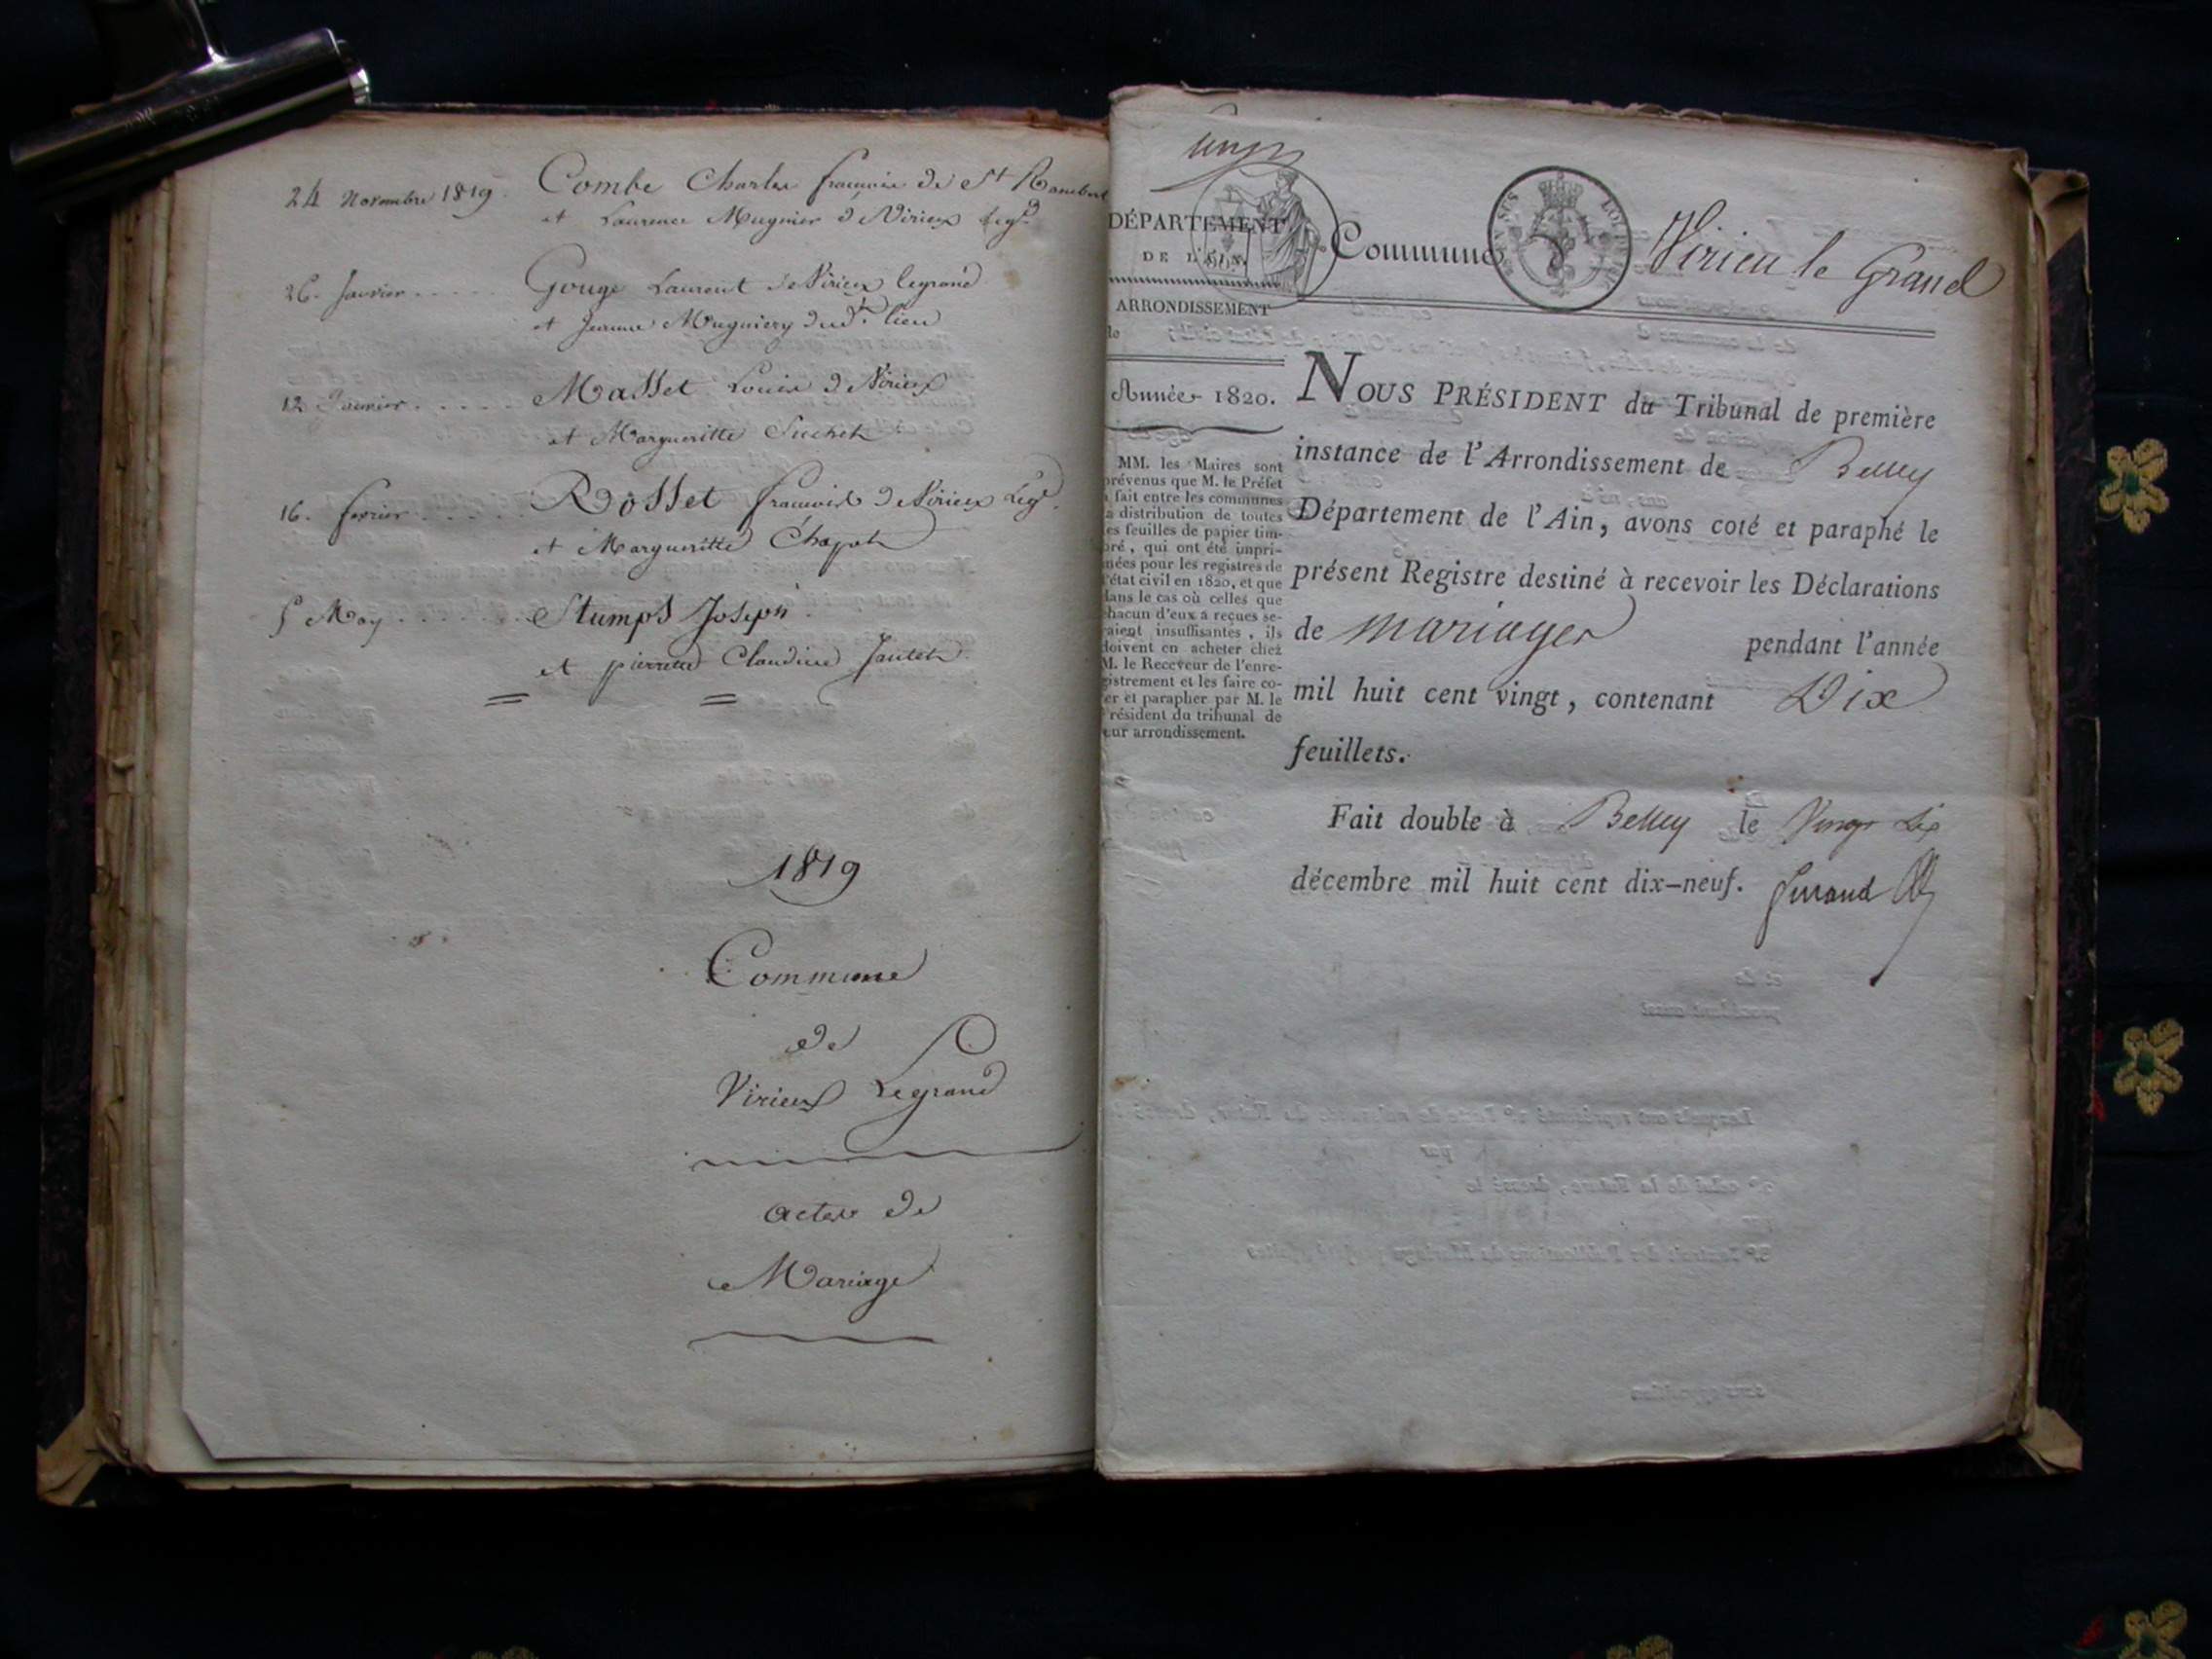 24 Novembre 1819. Combe Charles francois de St Rambert
et Laurence Mugnier de Virieux legd
26. Janvier ..... Gouge Laurent de Virieux legrand
et Jeanne Mugniery dudt. lieu
12 Janvier ..... Masset Louis de Virieux
et Margueritte Suchet
16. fevrier ..... Rosset francois de Virieux Legd.
et Margueritte Chapot
5 May ....... Stumps Joseph
et pierrette Claudine Jantet
1819
Commune
de
Virieux Legrand
actes de
Mariage
DÉPARTEMENT
DE L'AIN.
ARRONDISSEMENT
de
Année 1820.
MM. les Maires sont
prévenus que M. le Préfet
a fait entre les communes
la distribution de toutes
les feuilles de papier tim-
bré, qui ont été impri-
mées pour les registres de
l'état civil en 1820, et que
dans le cas où celles que
chacun d'eux a reçues se-
raient insuffisantes, ils
doivent en acheter chez
M. le Receveur de l'enre-
gistrement et les faire co-
ter et parapher par M. le
Président du tribunal de
leur arrondissement.
Commune Virieu le Grand
NOUS PRÉSIDENT du Tribunal de première
instance de l'Arrondissement de Belley
Département de l'Ain, avons coté et paraphé le
présent Registre destiné à recevoir les Déclarations
de mariages pendant l'année
mil huit cent vingt, contenant Dix
feuillets.
Fait double à Belley le Vingt Six
décembre mil huit cent dix-neuf.